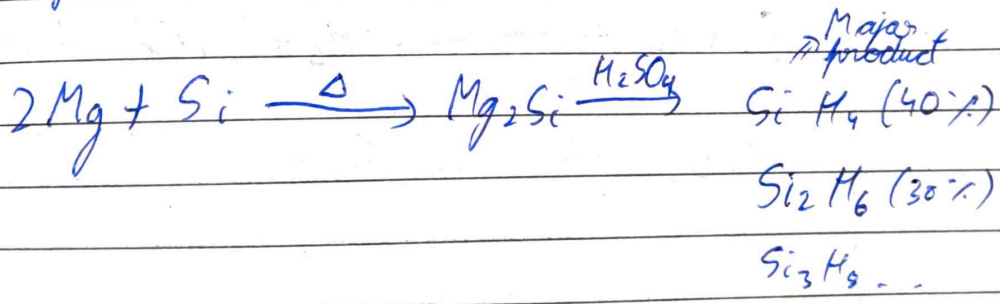 Major
⇒ product
2Mg + Si —Δ→ Mg₂Si —H₂SO₄→ SiH₄ (40%)
Si₂H₆ (30%)
Si₃H₈ . . .